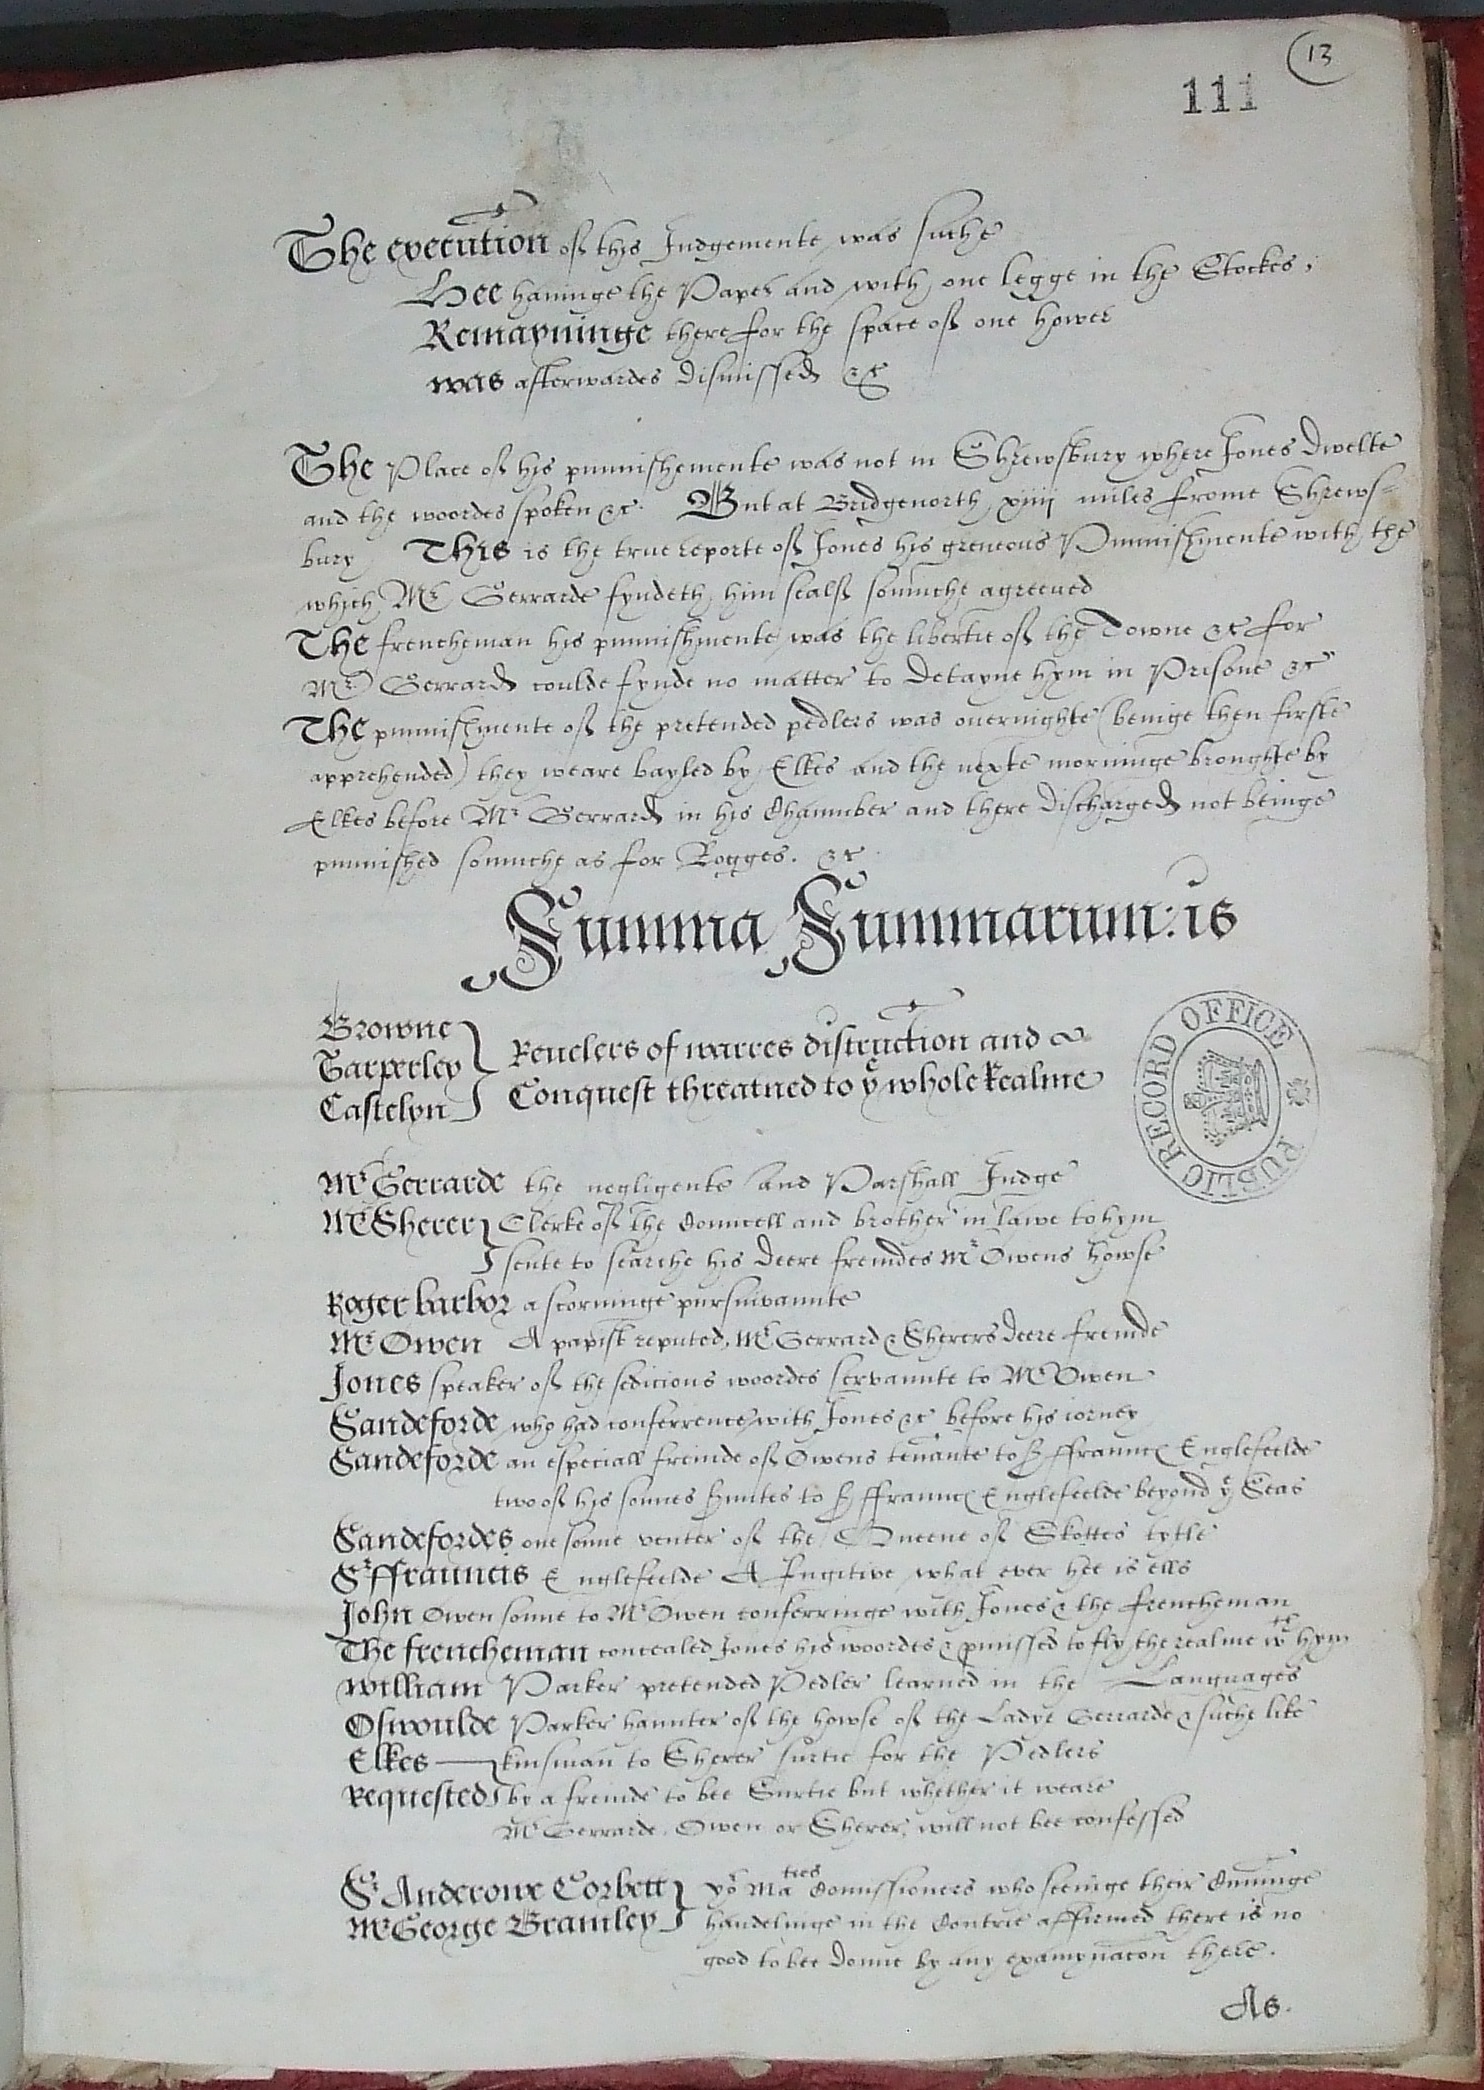 13
111
The execution of this Judgemente was suche
Hee havinge the Paper and with one legge in the Stockes,
Remayninge there for the space of one hower
was afterwardes dismissed &c
The Place of his punnishemente was not in Shrewsbury where Jones dwelte
and the woordes spoken &c. But at Bridgenorth xiiij miles frome Shrews-
bury This is the true reporte of Jones his greneous Punnishmente with the
which Mr Gerrarde fyndeth him sealf somuche agreeved
The frencheman his punnishmente was the libertie of the Towne &c for
Mr Gerrard coulde fynde no matter to detayne hym in Prisone &c
The punnishmente of the pretended pedlers was overnighte (beinge then firste
apprehended) they weare bayled by Elkes and the nexte morninge broughte by
Elkes before Mr Gerrard in his Chamnber and there discharged not beinge
punnished somuche as for Rogges. &c
Summa Summarum: is
Browne
Tarperley
Castelyn
Revelers of warres distruction and
Conquest threatned to ye whole Realme
PUBLIC RECORD OFFICE
Mr Gerrarde the negligente and Parshall Judge
Mr Sherer Clerke of the Councell and brother in lawe to hym
sente to searche his deere freindes Mr Owens howse
Roger barbor a scorninge pursuivannte
Mr Owen A papist reputed, Mr Gerrard & Sherers deere freinde
Jones speaker of the sedicious woordes servannte to Mr Owen
Sandeforde who had conferrence with Jones &c before his iorney
Sandeforde an especiall freinde of Owens tenante to Sr ffraunc Englefeelde
two of his sonnes Srvntes to Sr ffraunc Englefeelde beyond ye Seas
Sandefordes one sonne venter of the Queene of Skottes tytle
Sr ffrauncis Englefeelde A fugitive what ever hee is ells
John Owen sonne to Mr Owen conferringe with Jones & the frencheman
The frencheman concealed Jones his woordes & pmissed to fly the realme wth hym
William Parker pretended Pedler learned in the Languages
Oswoulde Parker haunter of the howse of the Ladye Gerrarde & suche like
Elkes kinsman to Sherer surtie for the Pedlers
Requested by a freinde to bee Surtie but whether it weare
Mr Gerrarde, Owen or Sherer, will not bee confessed
Sr Anderowe Corbett
Mr George Bramley
yor Maties Comissioners who seeinge their Cuninge
handelinge in the Contrie affirmed there is no
good to bee donne by any examynacon there.
As.